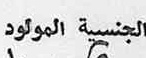 الجنسية المولود